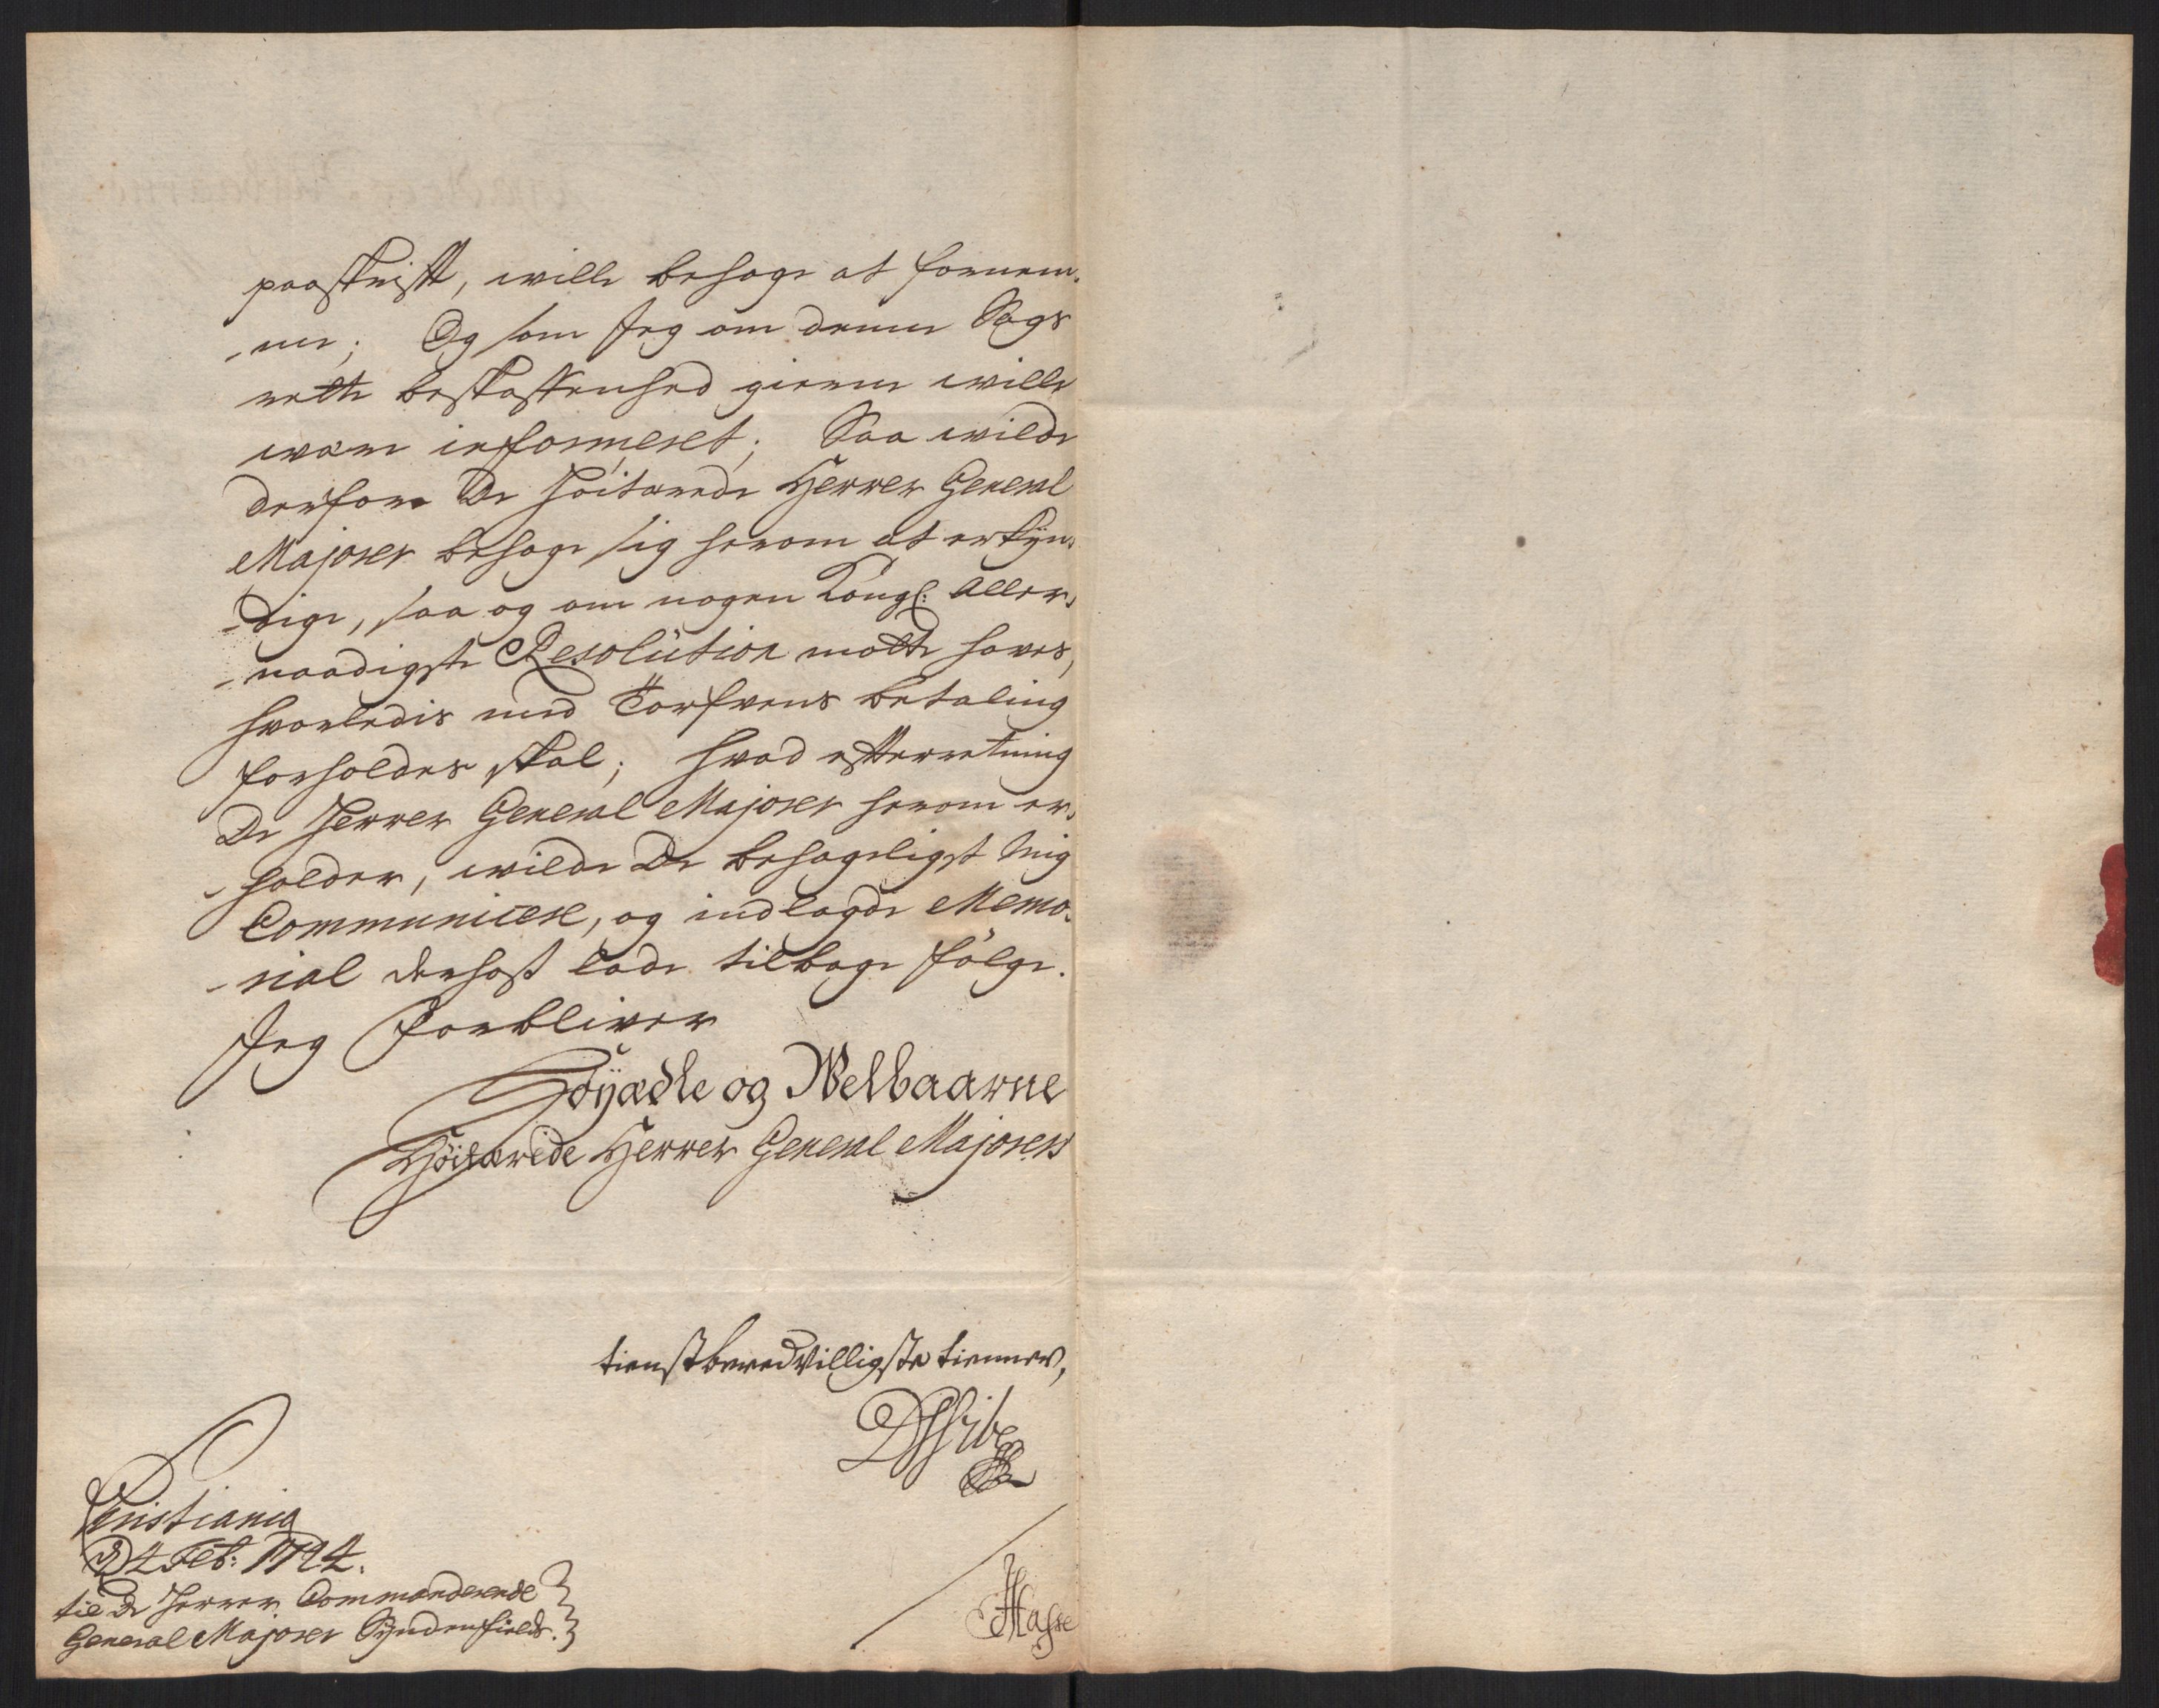 paaskrift, wille behage at fornem-
-me; Og som Jeg om denne Sags
rette beskaffenhed gierne wille
wære informeret; Saa wilde
derfore De Høitærede Herrer General
Majorer behage sig herom at erkyn-
-dige, saa og om nogen Kongl: Aller-
-naadigste Resolution motte haves,
hvorledis med Torfvens betaling
forholdes skal; hvad efterretning
De Herrer General Majorer herom er-
-holder, wilde De behageligst mig
Communicere, og indlagde Memo-
-rial derhos lade tilbage følge.
Jeg Forbliver
Høyædle og Welbaarne
Høitærede Herrer General Majorers
tienstberedvilligste tienner,
DVibe
Christiania
D 4 Feb: 1724.
til De Herrer Commanderende
General Majorer Syndenfields.
Hasse